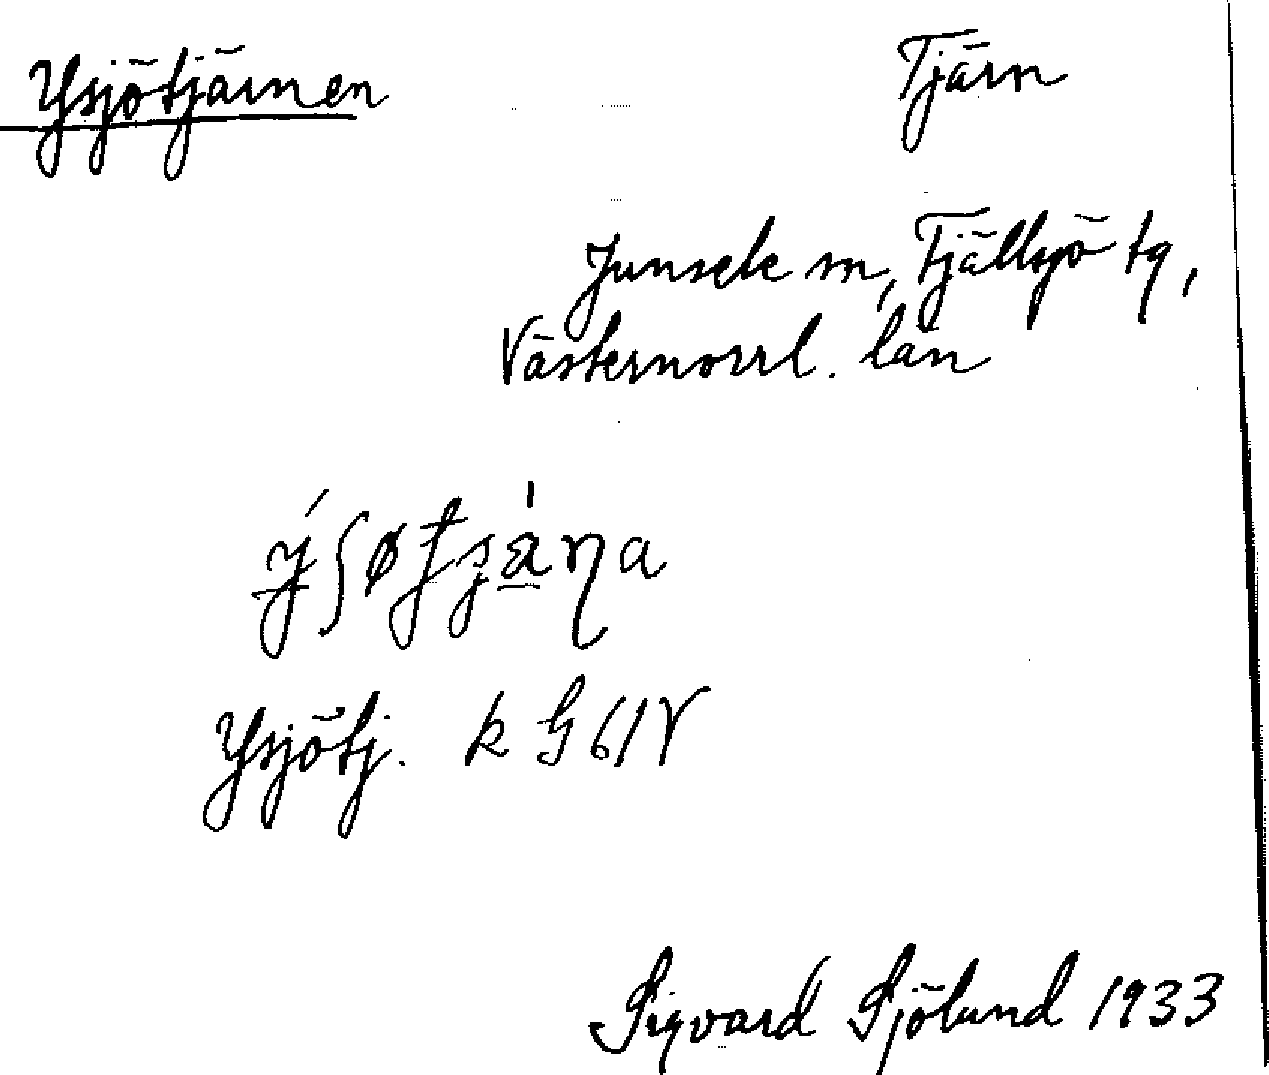 Ysjötjärnen
Tjärn
Junsele sn, Fjällsjö tg,
Västernorrl. län
Ysjötj. k G 61 V
Sigvard Sjölund 1933